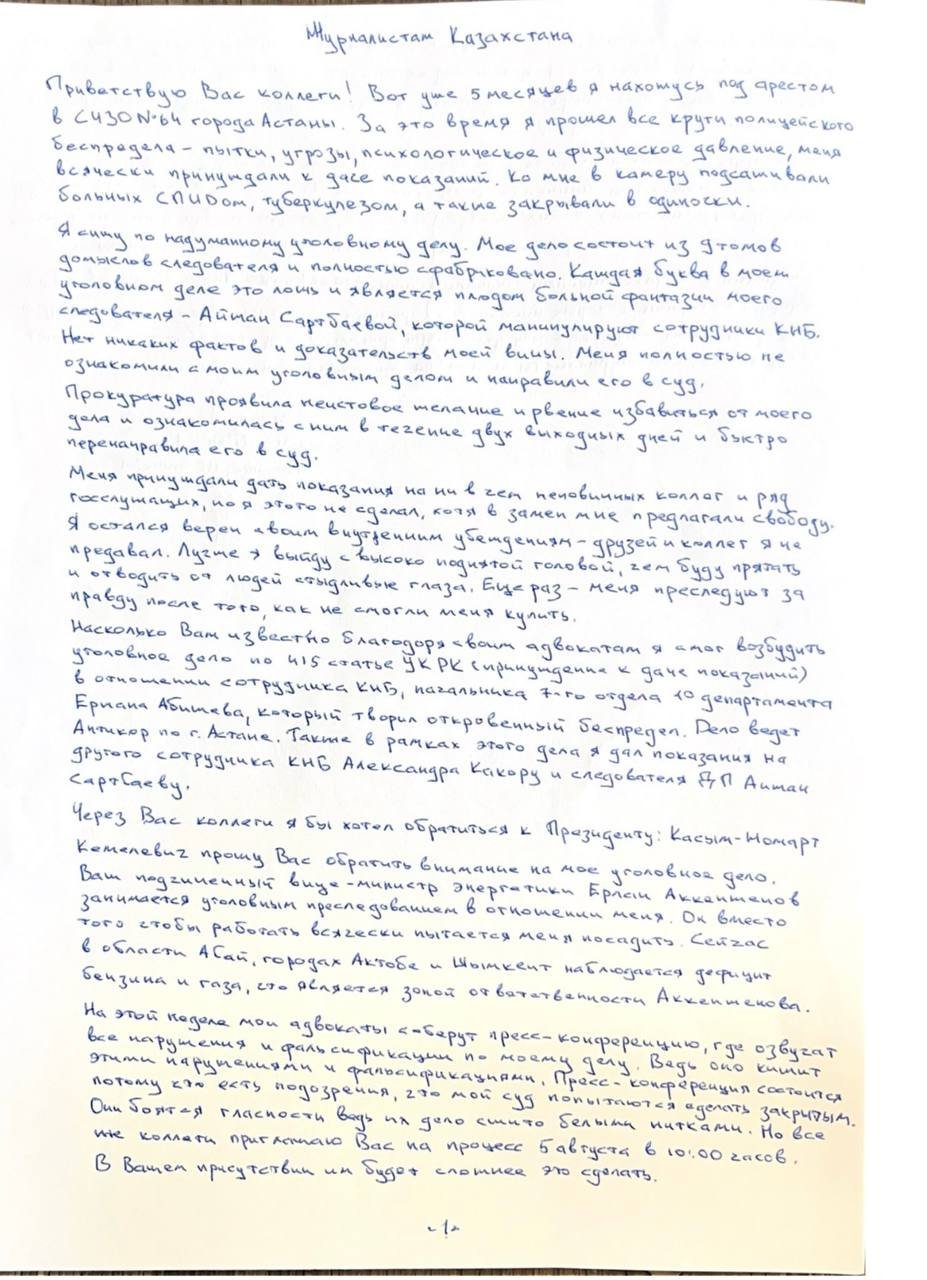 Журналистам Казахстана
Приветствую Вас коллеги! Вот уже 5 месяцев я нахожусь под арестом
в СИЗО №64 города Астаны. За это время я прошел все круги полицейского
беспредела – пытки, угрозы, психологическое и физическое давление, меня
всячески принуждали к даче показаний. Ко мне в камеру подсаживали
больных СПИДом, туберкулезом, а также закрывали в одиночки.
Я сижу по надуманному уголовному делу. Мое дело состоит из 9 томов
домыслов следователя и полностью сфабриковано. Каждая буква в моем
уголовном деле это ложь и является плодом больной фантазии моего
следователя – Айман Сартбаевой, которой манипулируют сотрудники КНБ.
Нет никаких фактов и доказательств моей вины. Меня полностью не
ознакомили с моим уголовным делом и направили его в суд.
Прокуратура проявила неистовое желание и рвение избавиться от моего
дела и ознакомилась с ним в течение двух выходных дней и быстро
перенаправила его в суд.
Меня принуждали дать показания на ни в чем неповинных коллег и ряд
госслужащих, но я этого не сделал, хотя в замен мне предлагали свободу.
Я остался верен своим внутренним убеждениям – друзей и коллег я не
предавал. Лучше я выйду с высоко поднятой головой, чем буду прятать
и отводить от людей стыдливые глаза. Еще раз – меня преследуют за
правду после того, как не смогли меня купить.
Насколько Вам известно благодоря своим адвокатам я смог возбудить
уголовное дело по 415 статье УК РК (принуждение к даче показаний)
в отношении сотрудника КНБ, начальника 7-го отдела 10 департамента
Ермана Абишева, который творил откровенный беспредел. Дело ведет
Антикор по г. Астане. Также в рамках этого дела я дал показания на
другого сотрудника КНБ Александра Какору и следователя ДП Айман
Сартбаеву.
Через Вас коллеги я бы хотел обратиться к Президенту: Касым-Жомарт
Кемелевич прошу Вас обратить внимание на мое уголовное дело.
Ваш подчиненный вице-министр энергетики Ерлан Аккенженов
занимается уголовным преследованием в отношении меня. Он вместо
того чтобы работать всячески пытается меня посадить. Сейчас
в области Абай, городах Актобе и Шымкент наблюдается дефицит
бензина и газа, что является зоной ответственности Аккенженова.
На этой неделе мои адвокаты соберут пресс-конференцию, где озвучат
все нарушения и фальсификации по моему делу. Ведь оно кишит
этими нарушениями и фальсификациями. Пресс-конференция состоится
потому что есть подозрения, что мой суд попытаются сделать закрытым.
Они боятся гласности ведь их дело сшито белыми нитками. Но все
же коллеги приглашаю Вас на процесс 5 августа в 10:00 часов.
В Вашем присутствии им будет сложнее это сделать.
~1~